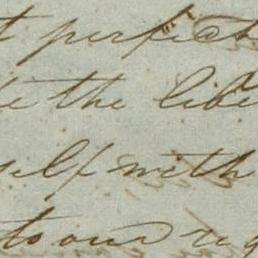 t perfect
te the libe
self with
to our reg